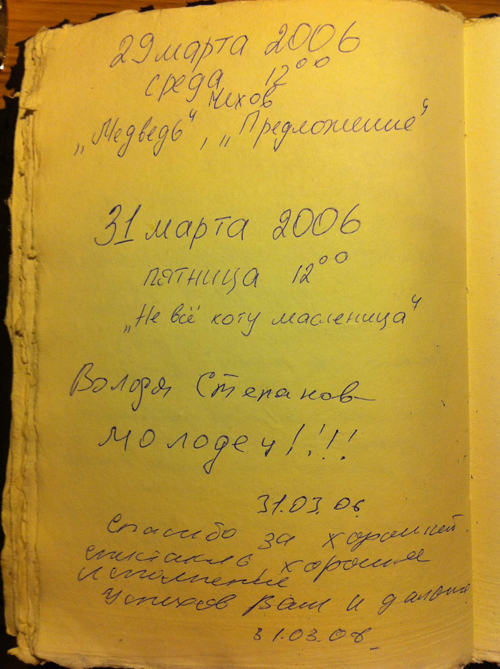 29 марта 2006
среда 12⁰⁰
Чехов
„Медведь“, „Предложение“
31 марта 2006
пятница 12⁰⁰
„Не всё коту масленица“
Володя Степанов
молодец!!!!
31.03.06.
Спасибо за хороший
спектакль, хорошее
исполнение
Успехов Вам и дальше
31.03.06